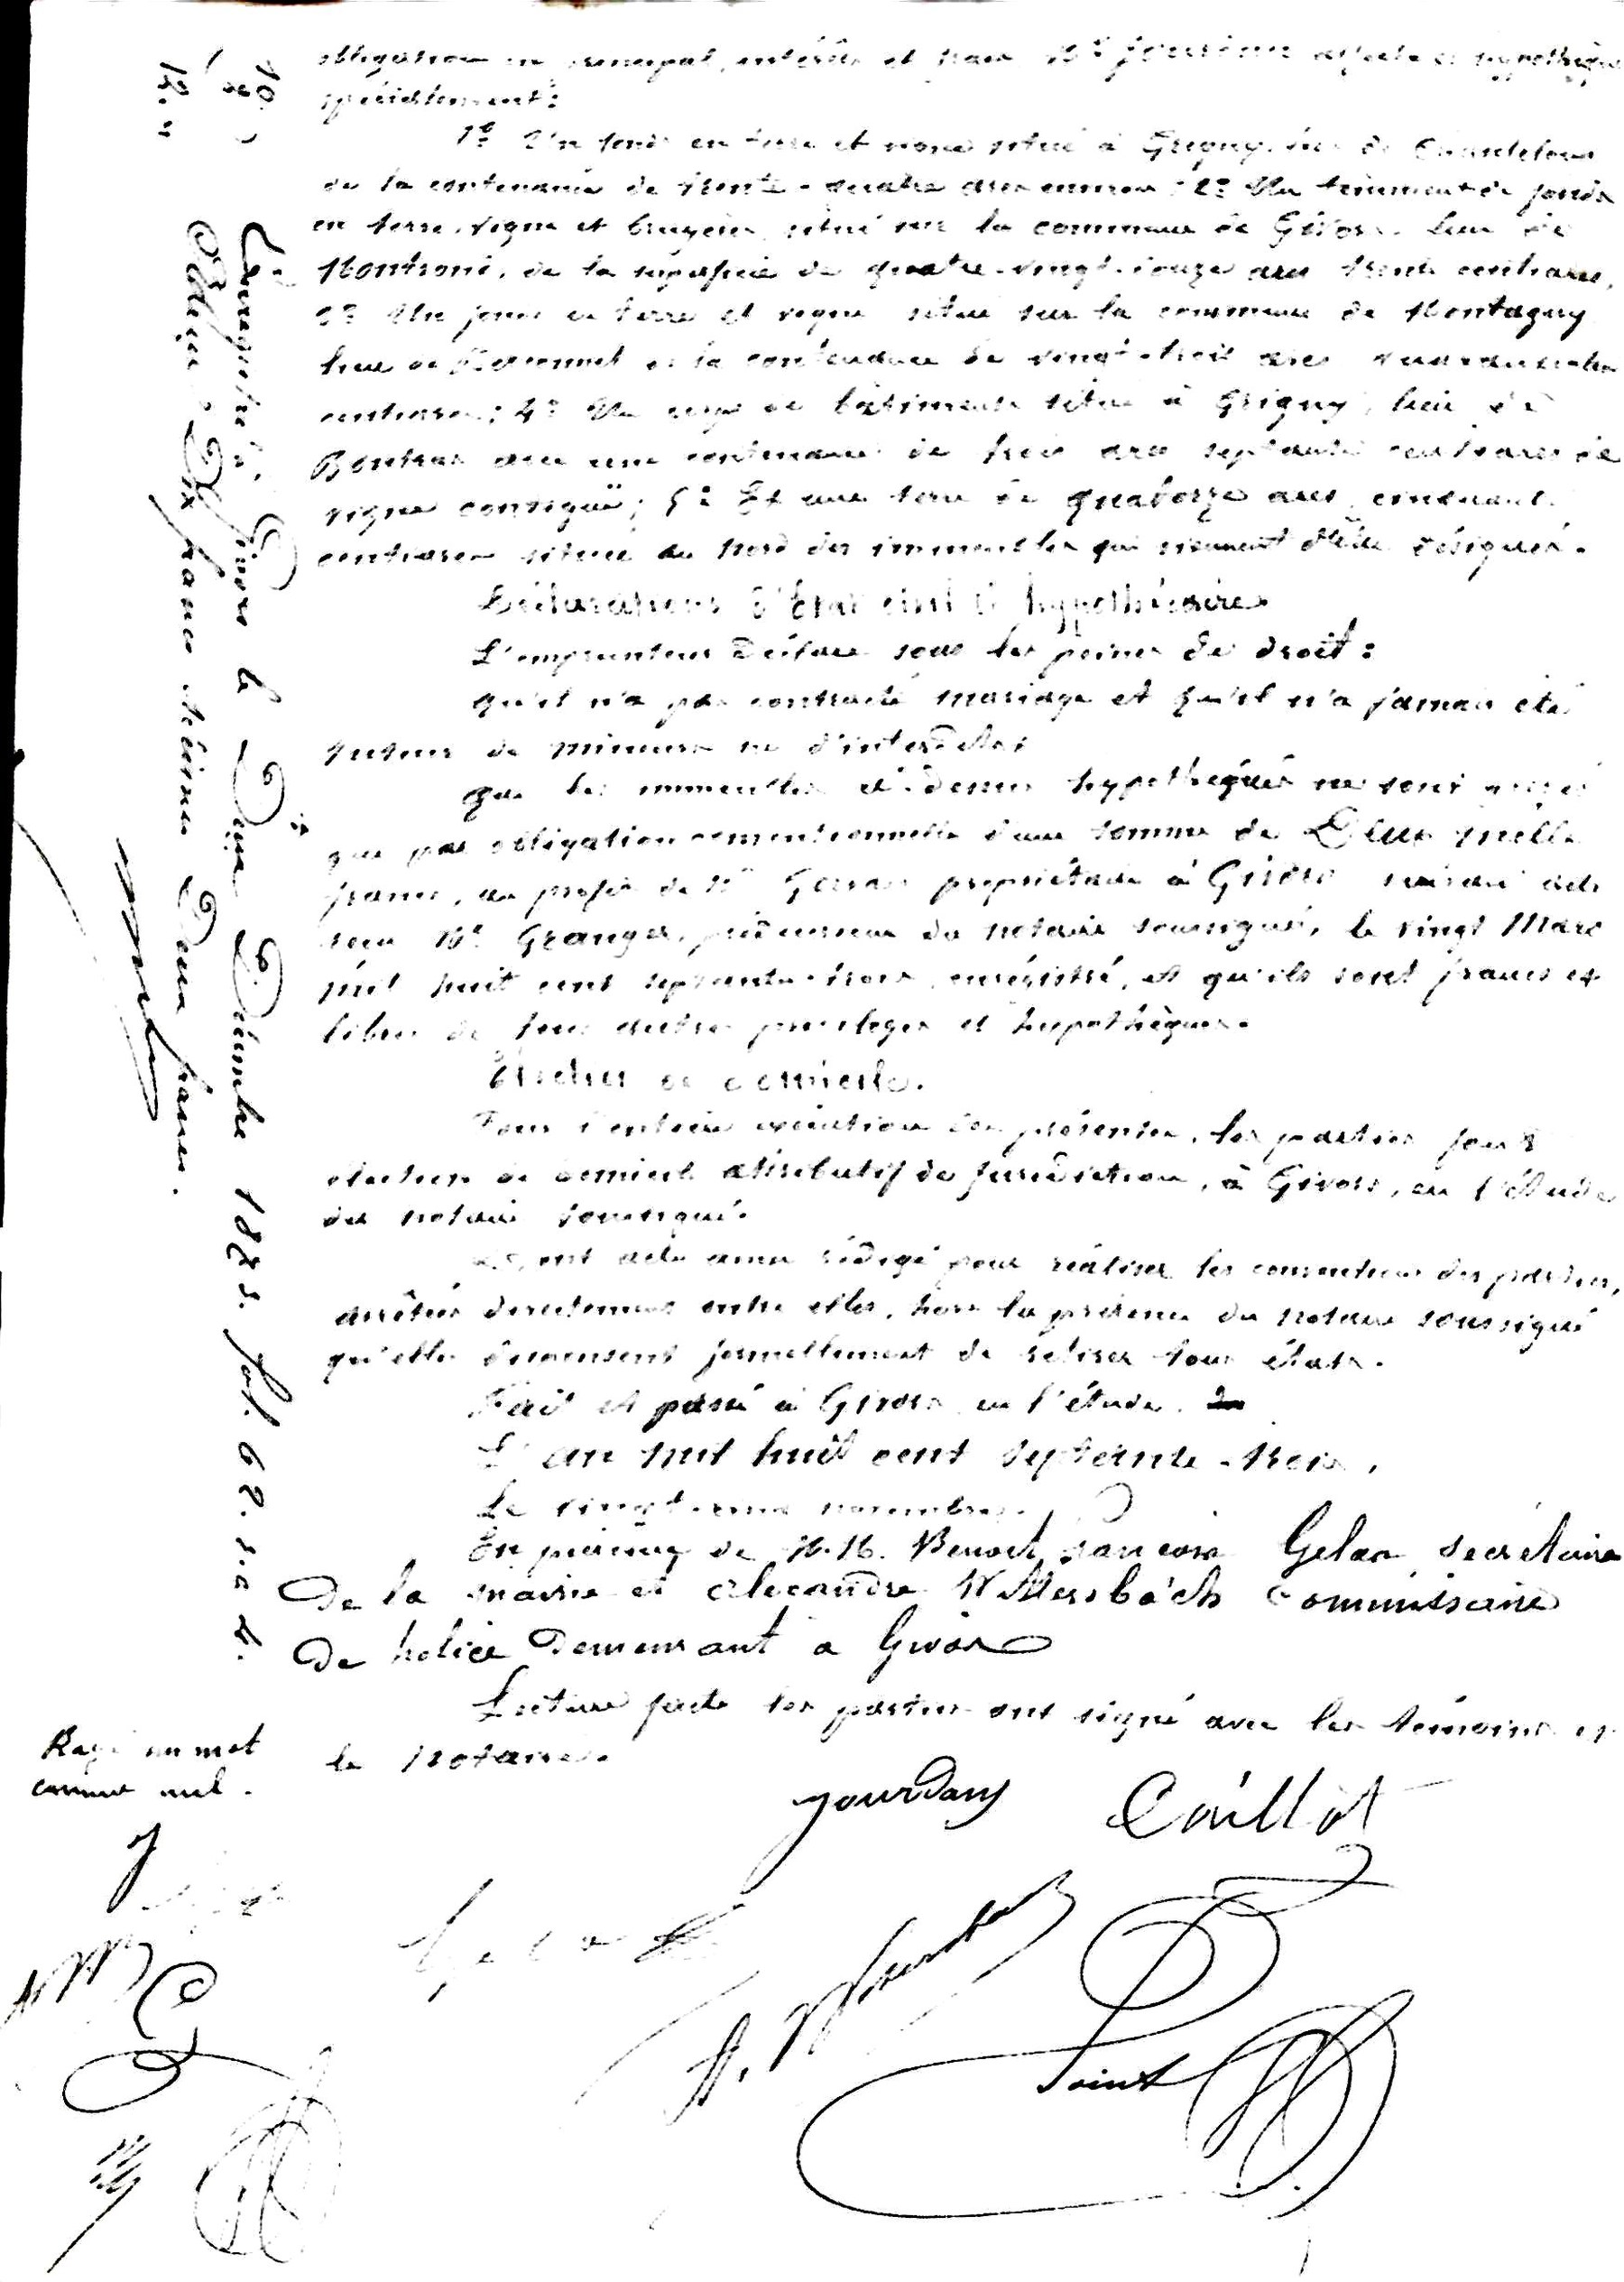 obligation en principal, intérêts et frais Mr affecte et hypothèque
spécialement:
1º Un fonds en terre et situé à Grigny, lieu de
de la contenance de trente-quatre ares environ; 2º Un tènement de fonds
en terre, vigne et bruyères situé sur la commune de Givors, lieu de
Montrond, de la superficie de quatre-vingt-onze ares trente centiares,
3º Un fonds en terre et vigne situé sur la commune de Montagny
lieu de de la contenance de vingt-trois ares
centiares; 4º Un corps de bâtiments situé à Grigny, lieu de
avec une contenance de trois ares septante centiares de
vigne contiguë; 5º Et une terre de quatorze ares cinquante
centiares située au nord des immeubles qui viennent d'être désignés.
Déclarations d'état civil et hypothécaire
L'emprunteur déclare sous les peines de droit:
qu'il n'a pas contracté mariage et qu'il n'a jamais été
tuteur de mineurs ni d'interdits;
que les immeubles ci-dessus hypothéqués ne sont grevés
que par obligation conventionnelle d'une somme de Deux mille
francs, au profit de Mr propriétaire à Givors suivant acte
reçu Me Granger, prédécesseur du notaire soussigné, le vingt Mars
mil huit cent septante-trois, enregistré, et qu'ils sont francs et
libres de tous autres privilèges et hypothèques.
Election de domicile.
Pour l'entière exécution des présentes, les parties font
élection de domicile attributif de juridiction, à Givors, en l'étude
du notaire soussigné.
acte ainsi rédigé pour réaliser les conventions des parties,
arrêtées directement entre elles, hors la présence du notaire soussigné
qu'elles dispensent formellement de retirer tous états.
Fait et passé à Givors en l'étude.
L'an mil huit cent septante-trois,
Le vingt novembre.
En présence de M.M. Benoit François Gelas secrétaire
De la mairie et Alexandre commissaire
De police Demeurant a Givors
Lecture faite les parties ont signé avec les témoins et
le notaire.
Rayé un mot
comme nul.
Jourdany Caillot
Gelas
Enregistré à Givors le Dix Décembre 1873. fol. 62.
Reçu Dix francs décimes Deux francs.